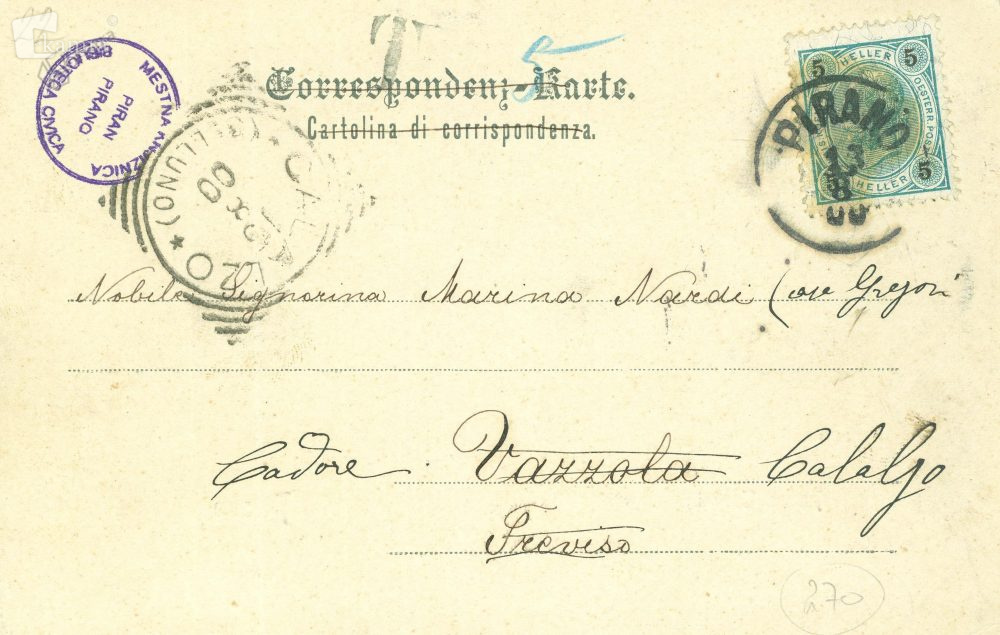 T 5
Correspondenz-Karte.
Cartolina di corrispondenza.
MESTNA KNJIŽNICA
PIRAN
PIRANO
BIBLIOTECA CIVICA
CALALZO
(BELLUNO)
00
5 HELLER 5
OESTERR. POST
5 HELLER 5
PIRANO
13
8
00
Nobile Signorina Marina Nardi (
Cadore Vazzola Calalzo
Treviso
270